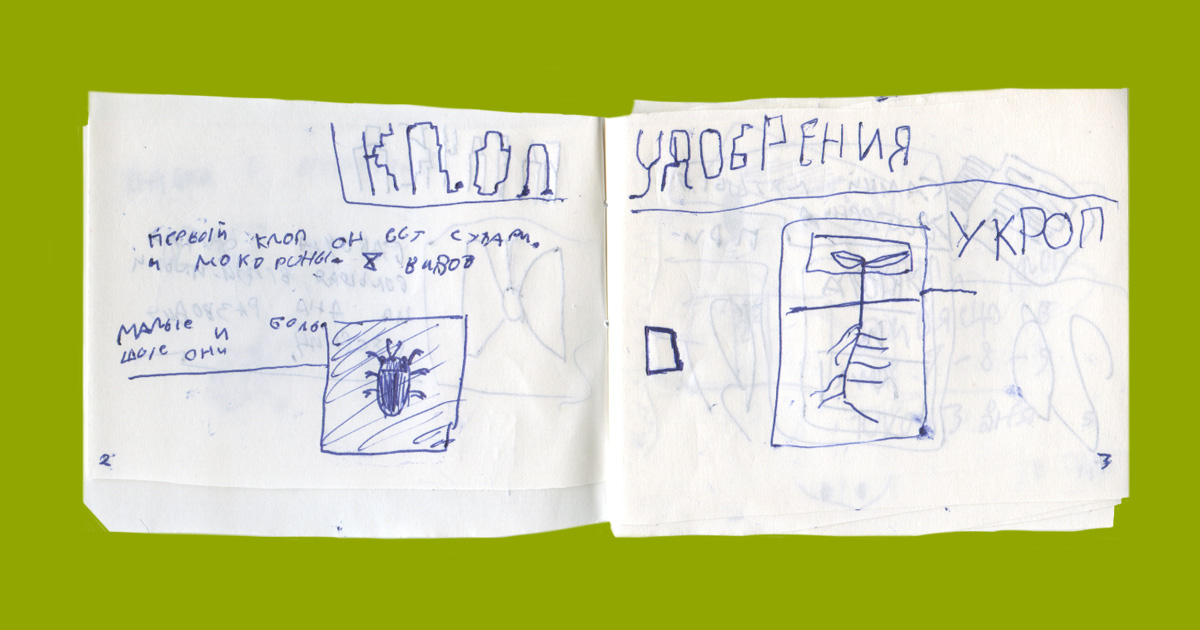 КЛОП
ПЕРВЫЙ КЛОП ОН ЕСТ СУХАРИ.
И МОКОРОНЫ. 8 ВИДОВ
МАЛЫЕ И БОЛЬ
ШЫЕ ОНИ
2
УДОБРЕНИЯ
УКРОП
3